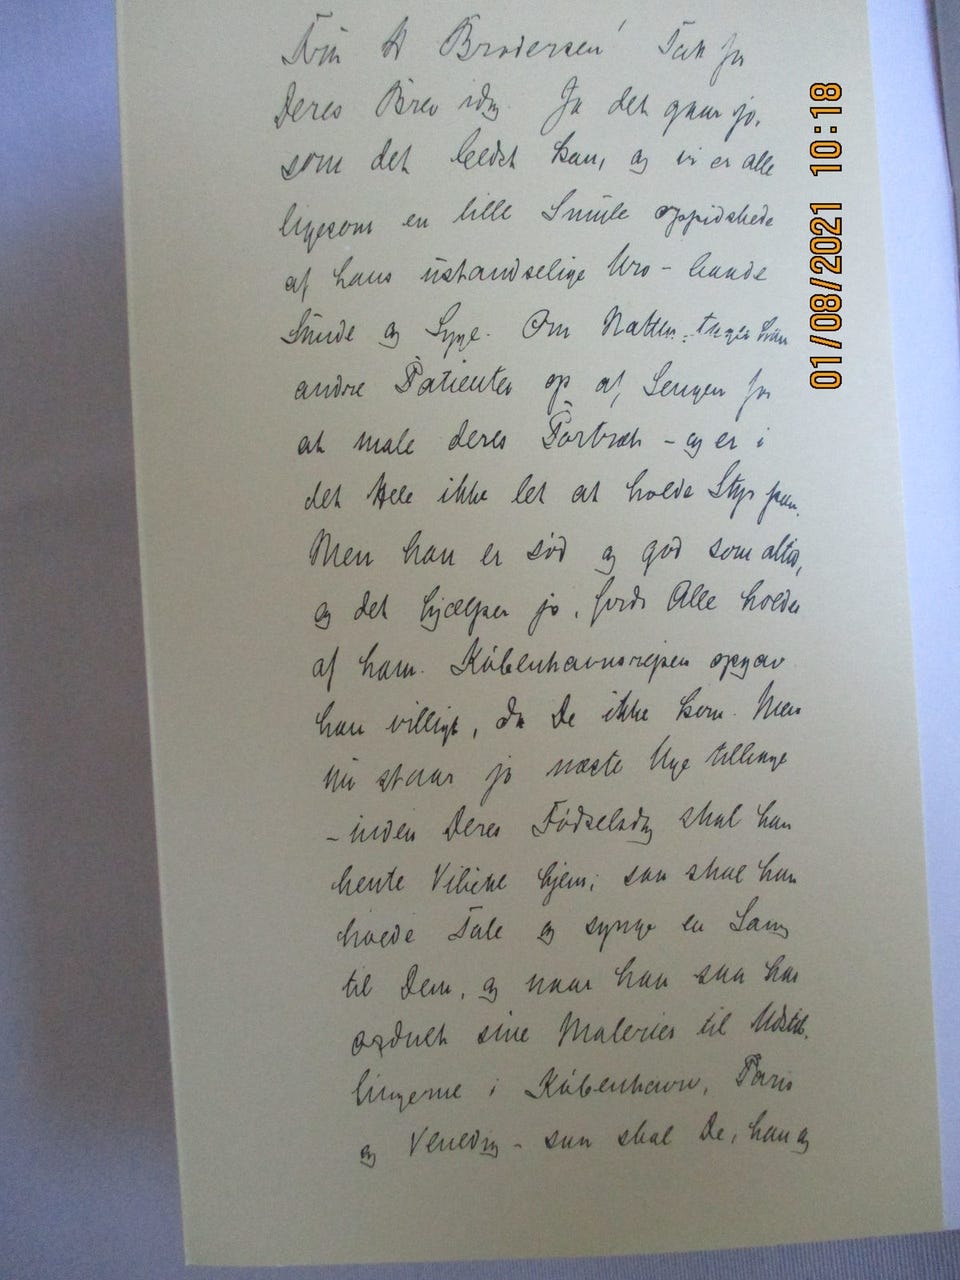 Fru A Brodersen! Tak for
Deres Brev idag. Ja det gaar jo,
som det bedst kan, og vi er alle
ligesom en lille Smule oppidskede
af hans ustandselige Uro - baade
Sunde og Syge. Om Natten tager han
andre Patienter op af Sengen for
at male deres Portræt - og er i
det Hele ikke let at holde Styr paa.
Men han er sød og god som altid,
og det hjælper jo, fordi Alle holder
af ham. Københavnsrejsen opgav
han villigt, da De ikke kom. Men
nu staar jo næste Uge tilbage
- inden Deres Fødselsdag skal han
hente Vibeke hjem, saa skal han
holde Tale og synge en Sang
til Dem, og naar han saa har
ordnet sine Malerier til Udstil-
lingerne i København, Paris
og Venedig - saa skal De, han og
01/08/2021 10:18